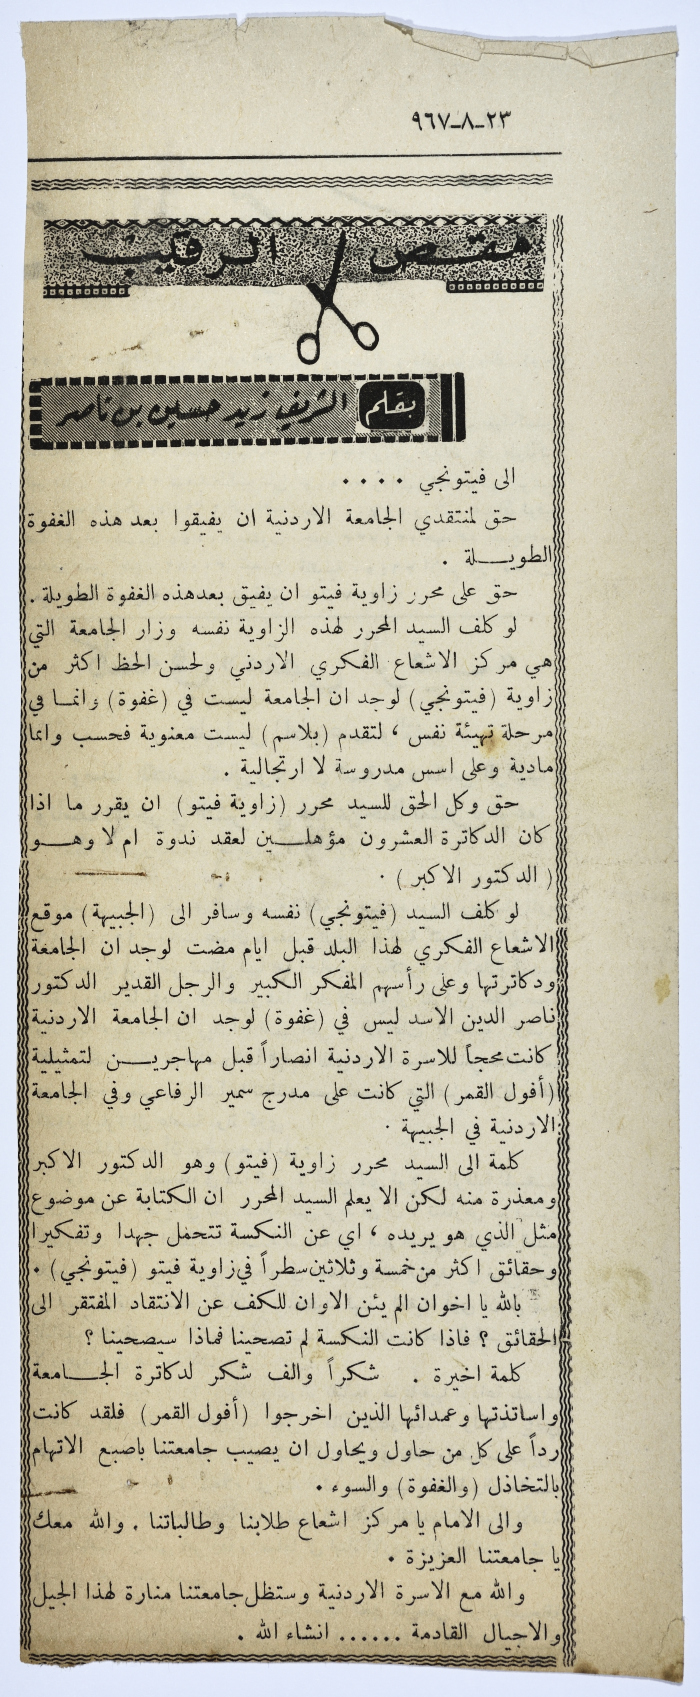 ٢٣-٨-٩٦٧
مقص الرقيب
بقلم الشريف زيد حسين بن ناصر
الى فيتونجي ....
حق لمنتقدي الجامعة الاردنية ان يفيقوا بعد هذه الغفوة
الطويلة .
حق على محرر زاوية فيتو ان يفيق بعدهذه الغفوة الطويلة .
لو كلف السيد المحرر لهذه الزاوية نفسه وزار الجامعة التي
هي مركز الاشعاع الفكري الاردني ولحسن الحظ اكثر من
زاوية (فيتونجي) لوجد ان الجامعة ليست في (غفوة) وانما في
مرحلة تهيئة نفس ، لتقدم (بلاسم) ليست معنوية فحسب وانما
مادية وعلى اسس مدروسة لا ارتجالية .
حق وكل الحق للسيد محرر (زاوية فيتو) ان يقرر ما اذا
كان الدكاترة العشرون مؤهلين لعقد ندوة ام لا وهو
( الدكتور الاكبر ) .
لو كلف السيد (فيتونجي) نفسه وسافر الى (الجبيهة) موقع
الاشعاع الفكري لهذا البلد قبل ايام مضت لوجد ان الجامعة
ودكاترتها وعلى رأسهم المفكر الكبير والرجل القدير الدكتور
ناصر الدين الاسد ليس في (غفوة) لوجد ان الجامعة الاردنية
كانت محجاً للاسرة الاردنية انصاراً قبل مهاجرين لتمثيلية
(أفول القمر) التي كانت على مدرج سمير الرفاعي وفي الجامعة
الاردنية في الجبيهة .
كلمة الى السيد محرر زاوية (فيتو) وهو الدكتور الاكبر
ومعذرة منه لكن الا يعلم السيد المحرر ان الكتابة عن موضوع
مثل الذي هو يريده ، اي عن النكسة تتحمل جهدا وتفكيرا
وحقائق اكثر من خمسة وثلاثين سطراً في زاوية فيتو (فيتونجي) .
بالله يا اخوان الم يئن الاوان للكف عن الانتقاد المفتقر الى
الحقائق ؟ فاذا كانت النكسة لم تصحينا فماذا سيصحينا ؟
كلمة اخيرة . شكراً والف شكر لدكاترة الجامعة
واساتذتها وعمدائها الذين اخرجوا (أفول القمر) فلقد كانت
رداً على كل من حاول ويحاول ان يصيب جامعتنا باصبع الاتهام
بالتخاذل (والغفوة) والسوء .
والى الامام يا مركز اشعاع طلابنا وطالباتنا . والله معك
يا جامعتنا العزيزة .
والله مع الاسرة الاردنية وستظل جامعتنا منارة لهذا الجيل
والاجيال القادمة ...... انشاء الله .